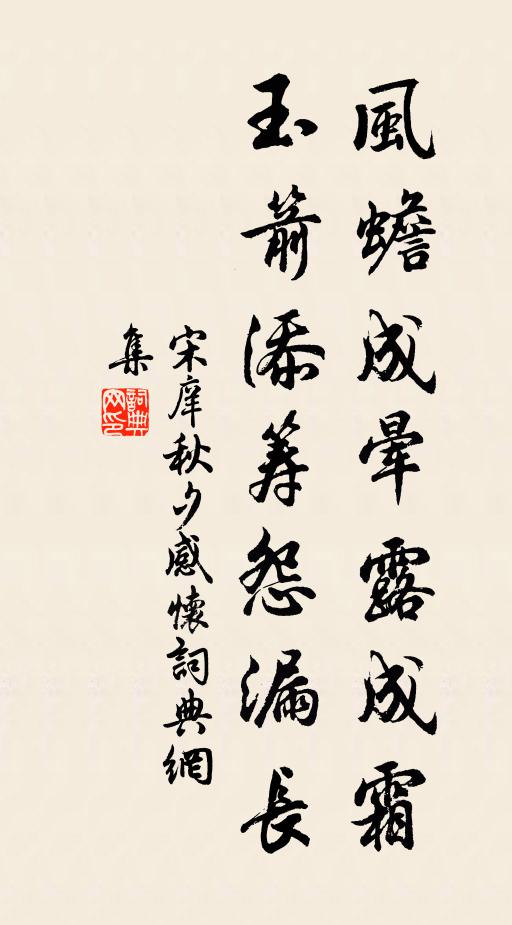 風蟾成暈露成霜
玉箭添籌怨漏長
宋庠秋夕感懷詞典網
集
詞典網印